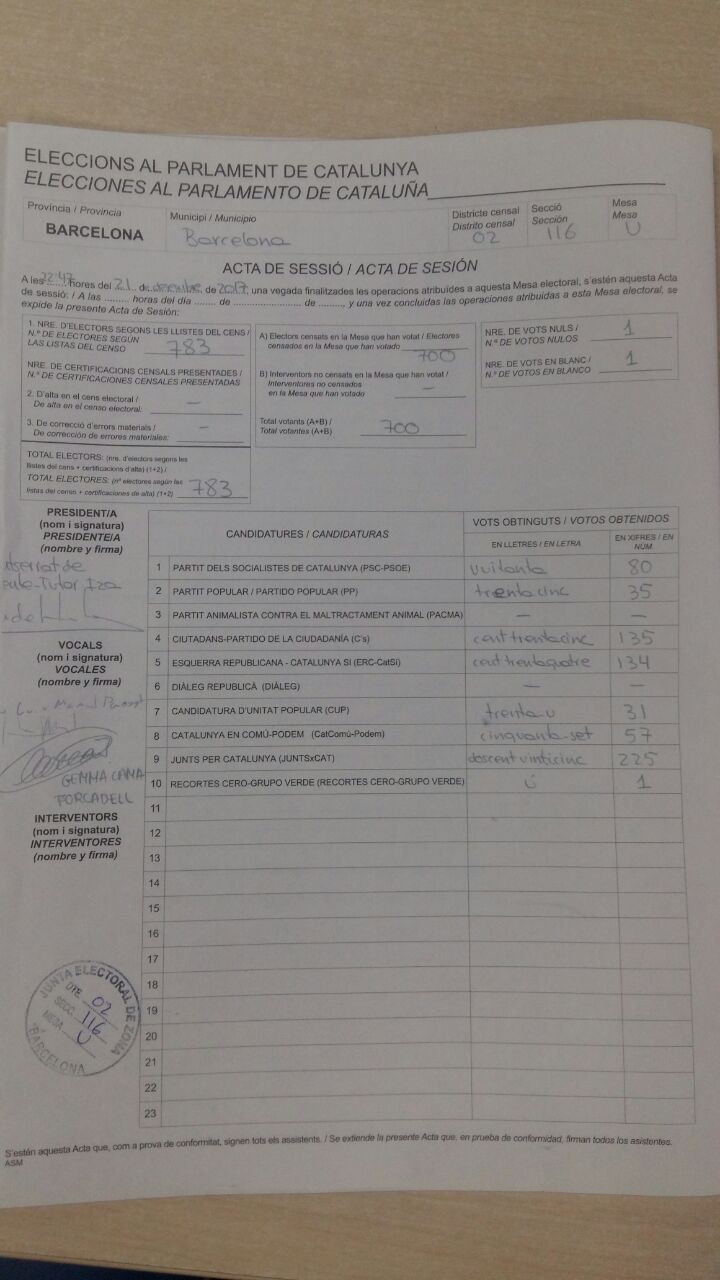 ELECCIONS AL PARLAMENT DE CATALUNYA
ELECCIONES AL PARLAMENTO DE CATALUÑA
Província / Provincia
BARCELONA
Municipi / Municipio
Barcelona
Districte censal
Distrito censal
02
Secció
Sección
116
Mesa
Mesa
U
ACTA DE SESSIÓ / ACTA DE SESIÓN
A les 22:47 hores del 21 de desembre de 2017, una vegada finalitzades les operacions atribuïdes a aquesta Mesa electoral, s'estén aquesta Acta
de sessió: / A las ......... horas del día ....... de ....................... de ........, y una vez concluidas las operaciones atribuidas a esta Mesa electoral, se
expide la presente Acta de Sesión:
1. NRE. D'ELECTORS SEGONS LES LLISTES DEL CENS /
N.º DE ELECTORES SEGÚN
LAS LISTAS DEL CENSO 783
NRE. DE CERTIFICACIONS CENSALS PRESENTADES /
N.º DE CERTIFICACIONES CENSALES PRESENTADAS
2. D'alta en el cens electoral /
De alta en el censo electoral: —
3. De correcció d'errors materials /
De corrección de errores materiales: —
TOTAL ELECTORS: (nre. d'electors segons les
llistes del cens + certificacions d'alta) (1+2) /
TOTAL ELECTORES: (nº electores según las
listas del censo + certificaciones de alta) (1+2) 783
A) Electors censats en la Mesa que han votat / Electores
censados en la Mesa que han votado 700
B) Interventors no censats en la Mesa que han votat /
Interventores no censados
en la Mesa que han votado —
Total votants (A+B) /
Total votantes (A+B) 700
NRE. DE VOTS NULS /
N.º DE VOTOS NULOS 1
NRE. DE VOTS EN BLANC /
N.º DE VOTOS EN BLANCO 1
PRESIDENT/A
(nom i signatura)
PRESIDENTE/A
(nombre y firma)
VOCALS
(nom i signatura)
VOCALES
(nombre y firma)
GEMMA CAMA
FORCADELL
INTERVENTORS
(nom i signatura)
INTERVENTORES
(nombre y firma)
CANDIDATURES / CANDIDATURAS
VOTS OBTINGUTS / VOTOS OBTENIDOS
EN LLETRES / EN LETRA
EN XIFRES / EN NUM.
1 PARTIT DELS SOCIALISTES DE CATALUNYA (PSC-PSOE) vuitanta 80
2 PARTIT POPULAR / PARTIDO POPULAR (PP) trenta cinc 35
3 PARTIT ANIMALISTA CONTRA EL MALTRACTAMENT ANIMAL (PACMA) — —
4 CIUTADANS-PARTIDO DE LA CIUDADANÍA (C's) cent trenta cinc 135
5 ESQUERRA REPUBLICANA - CATALUNYA SÍ (ERC-CatSí) cent trenta quatre 134
6 DIÀLEG REPUBLICÀ (DIÀLEG) — —
7 CANDIDATURA D'UNITAT POPULAR (CUP) trenta-u 31
8 CATALUNYA EN COMÚ-PODEM (CatComú-Podem) cinquanta-set 57
9 JUNTS PER CATALUNYA (JUNTSxCAT) doscent vinticinc 225
10 RECORTES CERO-GRUPO VERDE (RECORTES CERO-GRUPO VERDE) ú 1
11
12
13
14
15
16
17
18
19
20
21
22
23
JUNTA ELECTORAL DE ZONA
DTE. 02
SECC. 116
MESA U
BARCELONA
S'estén aquesta Acta que, com a prova de conformitat, signen tots els assistents. / Se extiende la presente Acta que, en prueba de conformidad, firman todos los asistentes.
ASM